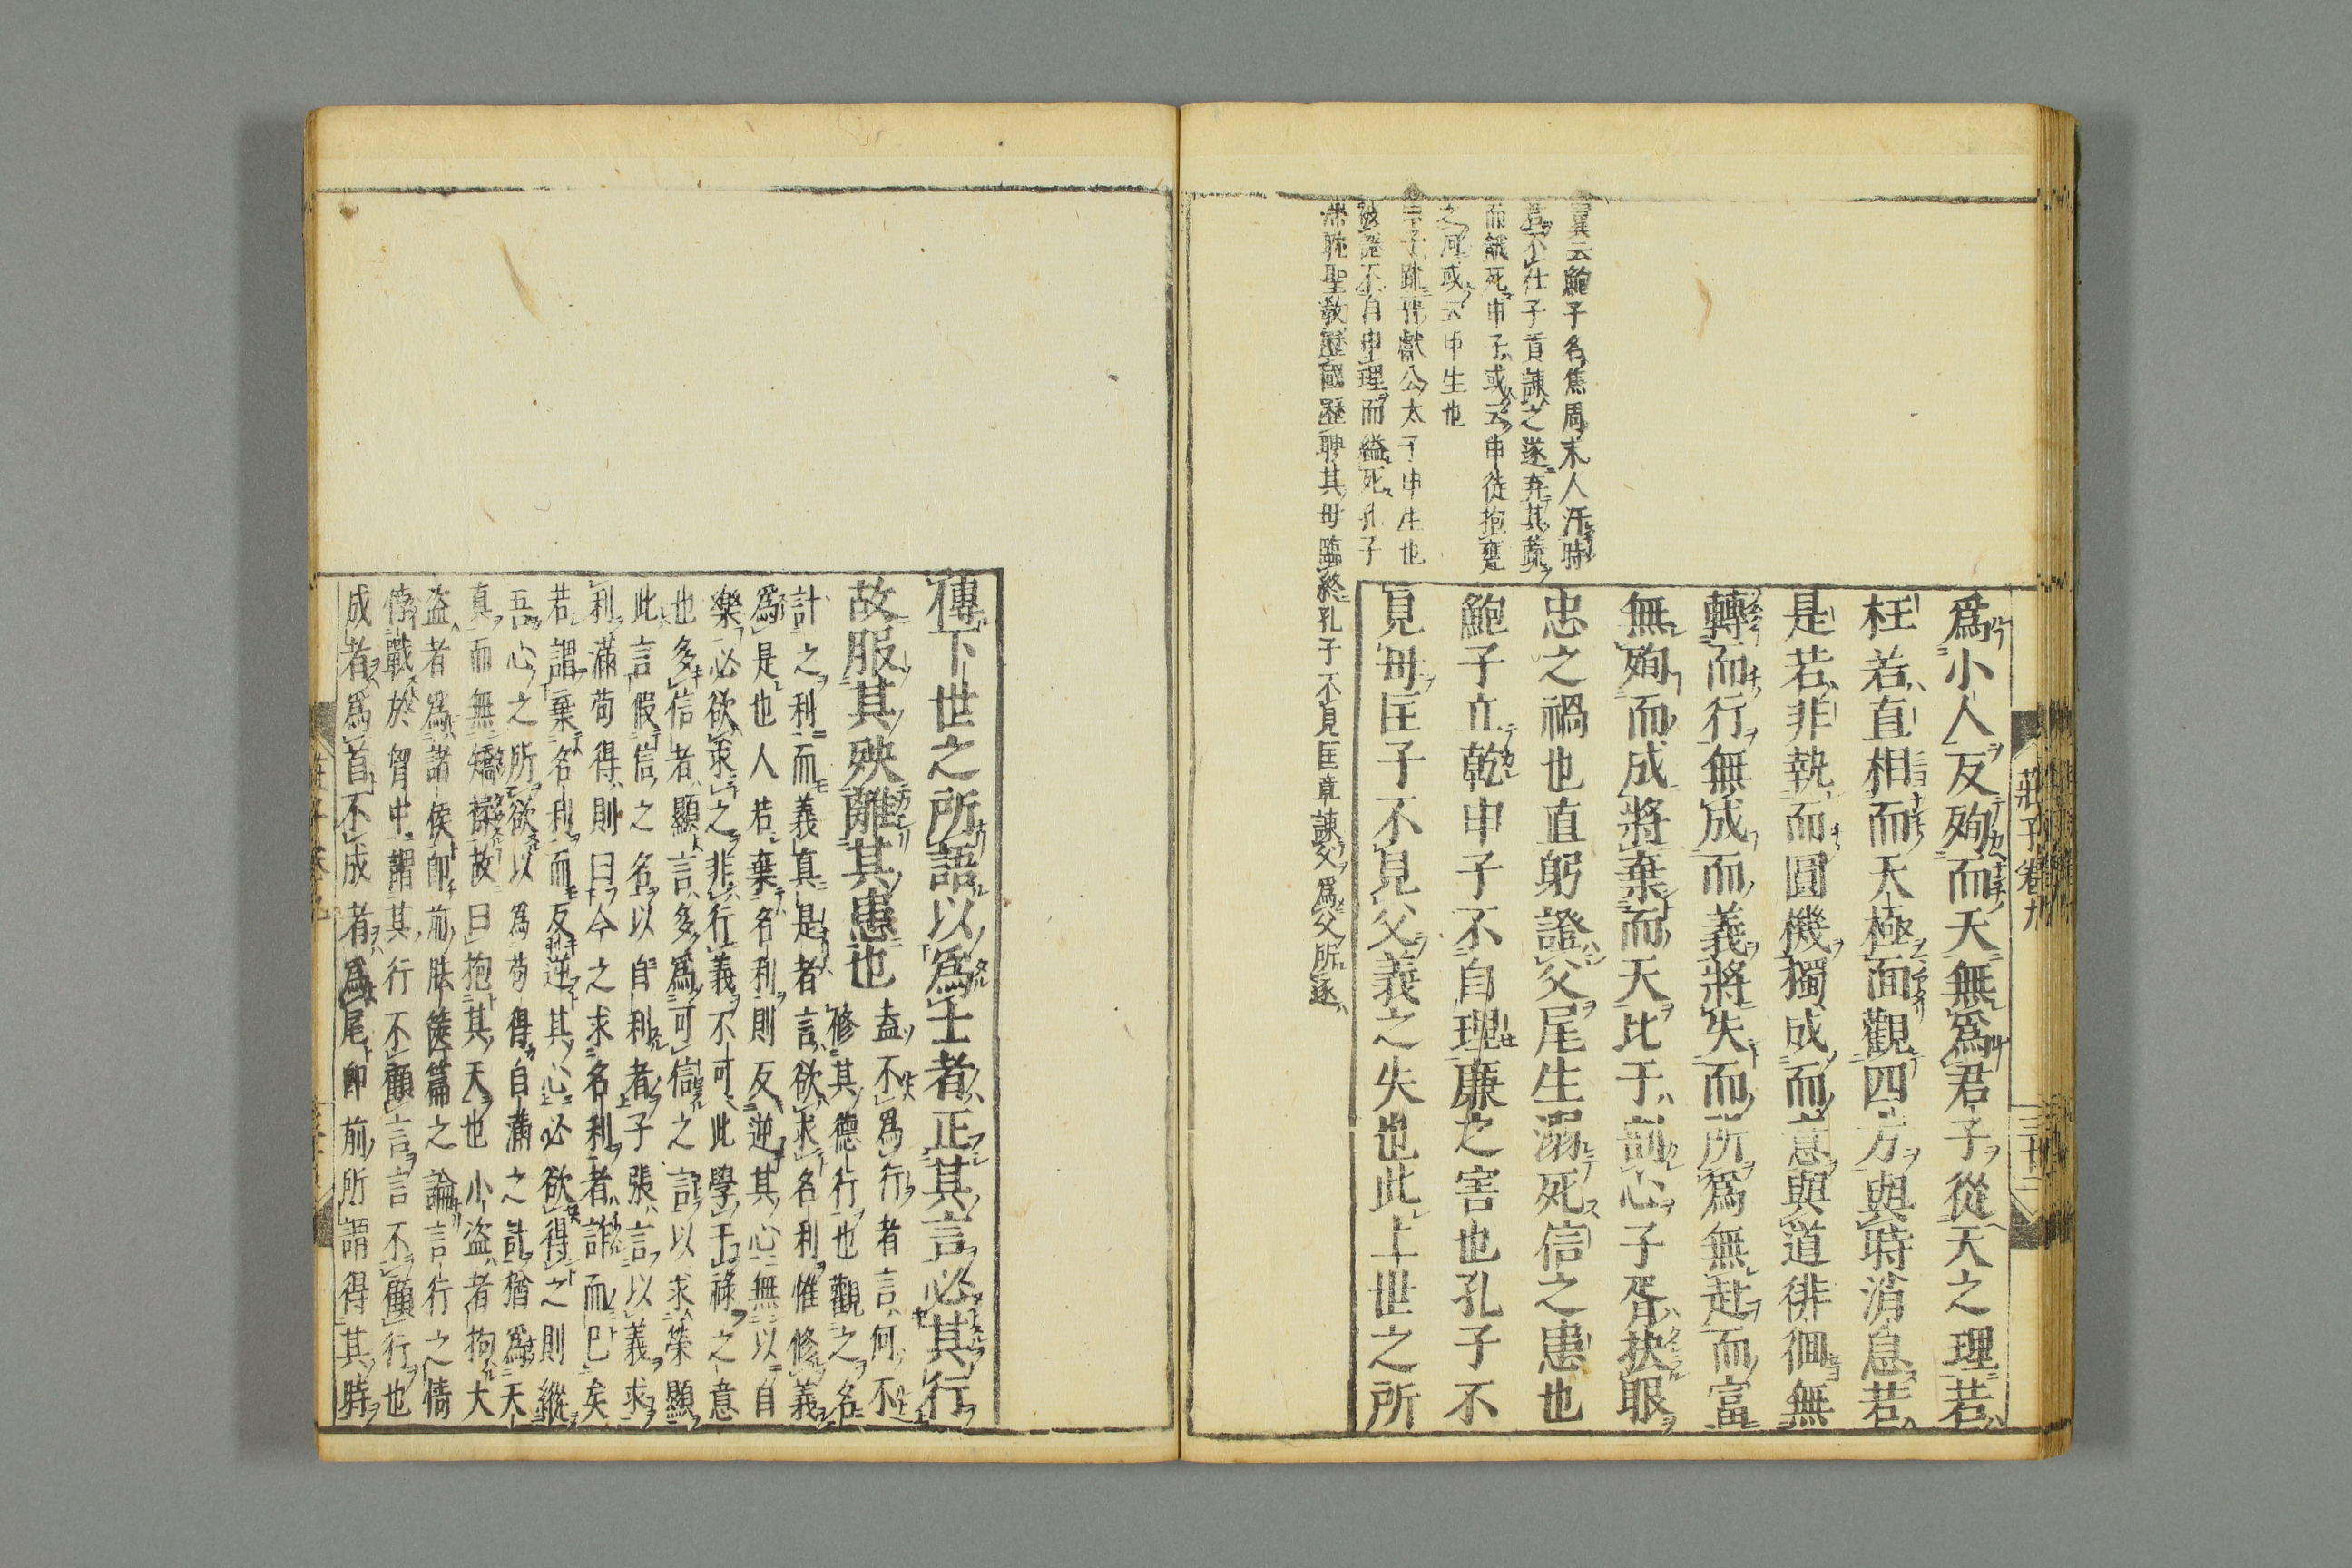 莊子卷九
三十二
爲小人反殉而天無爲君子從天之理若
枉若直相而天極面觀四方與時消息若
是若非執而圓機獨成而意與道徘徊無
轉而行無成而義將失而所爲無赴而富
無殉而成將棄而天比干剖心子胥抉眼
忠之禍也直躬證父尾生溺死信之患也
鮑子立乾申子不自理廉之害也孔子不
見母匡子不見父義之失也此上世之所
翼云鮑子名焦周末人汙時
君不仕子貢諫之遂弃其蔬
而餓死申子或云申徒抱甕
之河或云申生也
申子
獻公太子申生也
不自申理而縊死孔子
聖教歷國歷聘其母臨終孔子不見匡章諫父爲父所逐
傳下世之所語以爲士者正其言必其行
故服其殃離其患也
盍不爲行者言何不
修其德行也觀之名
計之利而義真是者言欲求名利惟修義
爲是也人若棄名利則反逆其心無以自
樂必欲求之非行義不可此學干祿之意
也多信者顯言多爲可信之言以求榮顯
此言假信之名以自利者子張言以義求
利滿苟得則曰今之求名利者詐而已矣
若謂棄名利而反逆其心必欲得之則縱
吾心之所欲以爲苟得自滿之計猶爲天
真而無矯揉故曰抱其天也小盗者拘大
盗者爲諸侯即前胠篋篇之論言行之情
悖戰於胷中謂其行不顧言言不顧行也
成者爲首不成者爲尾即前所謂得其時